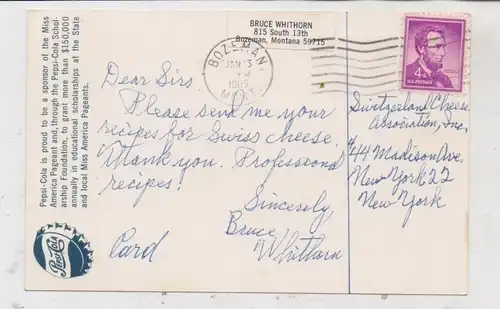 BRUCE WHITHORN
815 South 13th
Bozeman, Montana 59715
BOZEMAN
JAN 3
1965
4¢
U.S. POSTAGE
Pepsi-Cola is proud to be a sponsor of the Miss
America Pageant and, through the Pepsi-Cola Schol-
arship Foundation, to grant more than $150,000
annually in educational scholarships at the State
and local Miss America Pageants.
Pepsi-Cola
Dear Sirs
Please send me your
recipes for Swiss cheese.
Thank you. Professional
recipes!
Sincerely,
Bruce
Whithorn
Card
Switzerland Cheese
Association, Inc.
444 Madison Ave.
New York 22
New York